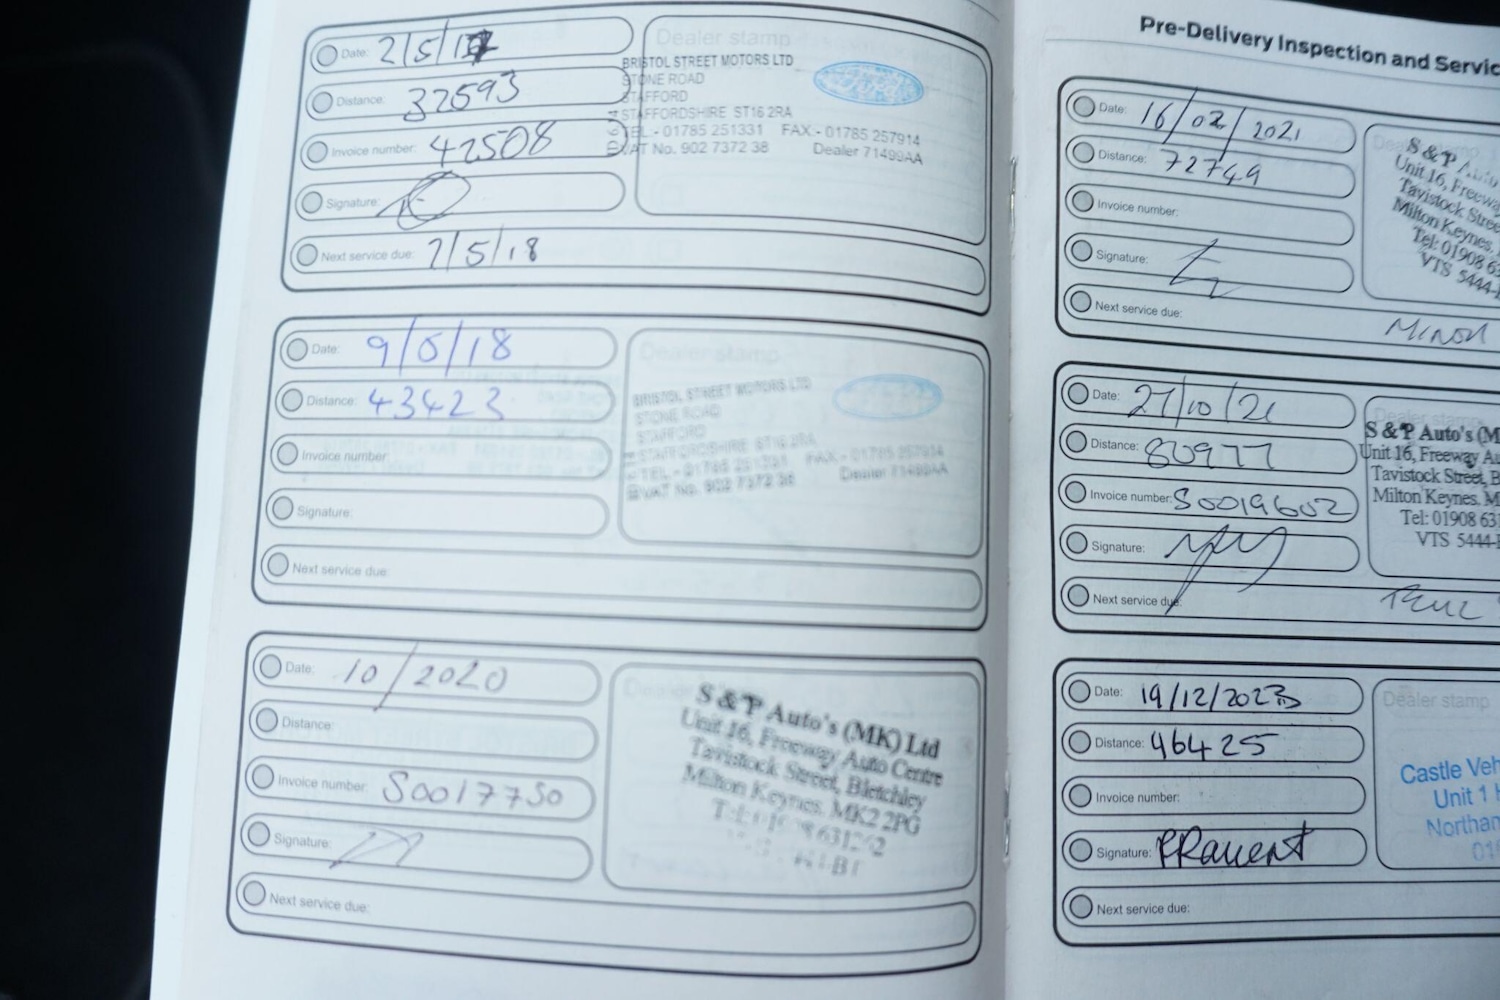 Date: 2/5/17
Distance: 32593
Invoice number: 42508
Signature:
Next service due: 2/5/18
Dealer stamp
BRISTOL STREET MOTORS LTD
STONE ROAD
STAFFORD
STAFFORDSHIRE ST16 2RA
TEL:- 01785 251331 FAX:- 01785 257914
VAT No. 902 7372 38 Dealer 71499AA
Ford
Date: 9/5/18
Distance: 43423
Invoice number:
Signature:
Next service due:
Dealer stamp
BRISTOL STREET MOTORS LTD
STONE ROAD
STAFFORD
STAFFORDSHIRE ST16 2RA
TEL:- 01785 251331 FAX:- 01785 257914
VAT No. 902 7372 38 Dealer 71499AA
Date: 10/2020
Distance:
Invoice number: S0017750
Signature:
Next service due:
S & P Auto's (MK) Ltd
Unit 16, Freeway Auto Centre
Tavistock Street, Bletchley
Milton Keynes. MK2 2PG
Pre-Delivery Inspection and Servic
Date: 16/02/2021
Distance: 72749
Invoice number:
Signature:
Next service due:
Minor
S & P Auto
Unit 16, Freeway
Tavistock Stree
Milton Keynes.
Tel: 01908 63
VTS 5444
Date: 27/10/21
Distance: 80977
Invoice number: S0019602
Signature:
Next service due:
Dealer stamp
S & P Auto's (M
Unit 16, Freeway Au
Tavistock Street, B
Milton Keynes. M
Tel: 01908 631
VTS 5444-
Date: 19/12/2023
Distance: 96425
Invoice number:
Signature:
Next service due:
Dealer stamp
Castle Veh
Unit 1 H
Northam
01